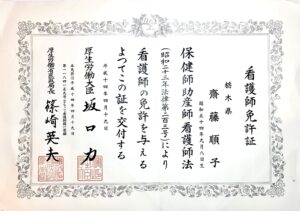 看護師免許証
栃木県
齋藤順子
昭和五十四年九月八日生
保健師助産師看護師法
(昭和二十三年法律第二百三号)により
看護師の免許を与える
よつてこの証を交付する
平成十四年四月十九日
厚生労働大臣 坂口力
厚生労働省医政局長 篠崎英夫